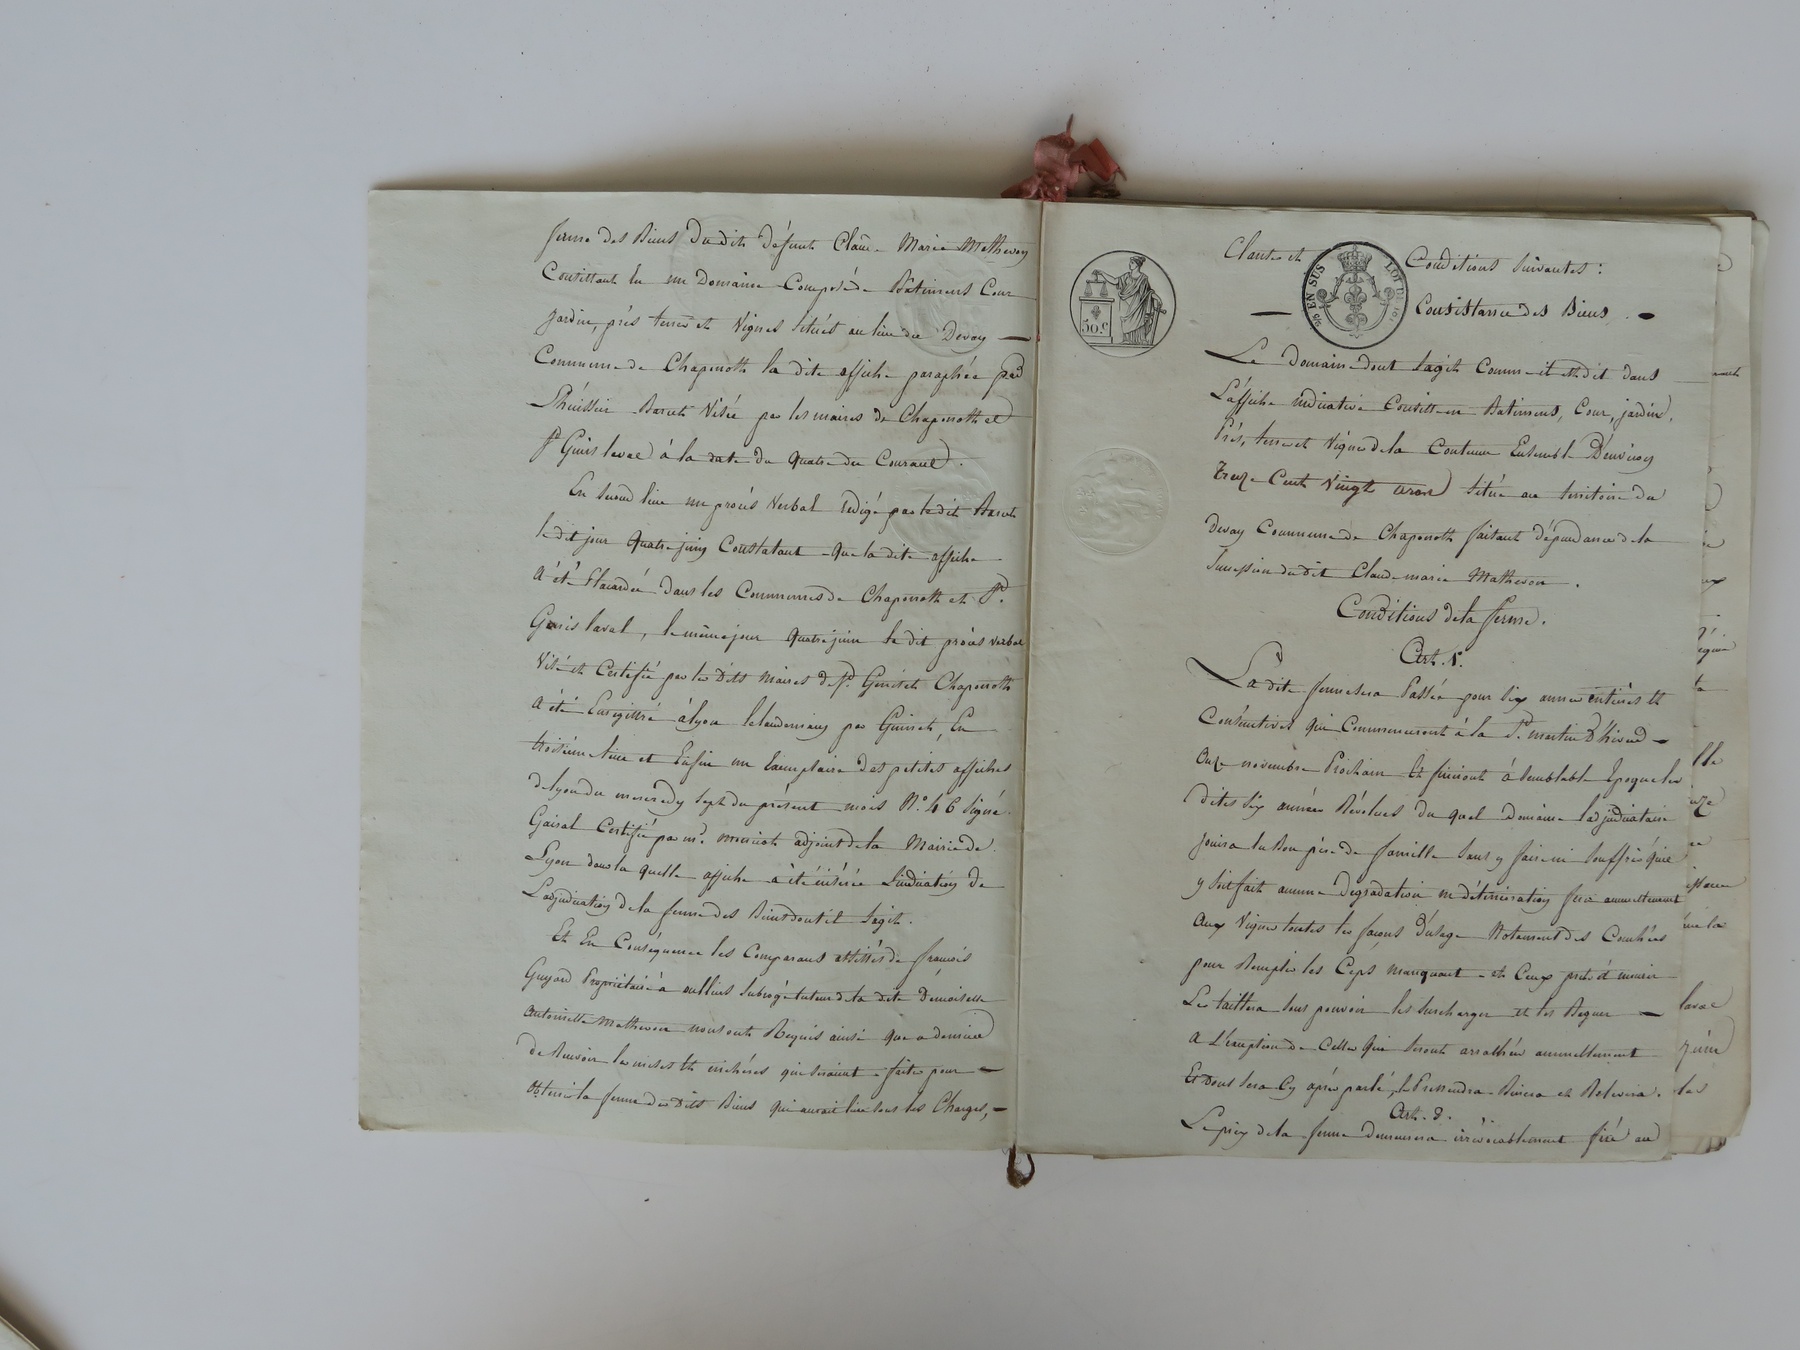 ferme des Biens du dit défunt Claude Marie Mathevon
Consistant En un Domaine Composé de Bâtiments Cour
Jardin, prés terres et Vignes situés au lieu du Devay —
Commune de Chaponoth la dite affiche paraphée par
L'huissier Barret Visée par les maires de Chaponoth et
St Genis laval à la date du quatre du Courant.
En second lieu un procès Verbal rédigé par le dit Barret
le dit jour quatre juin Constatant que la dite affiche
A été Placardée dans les Communes de Chaponoth et St.
Genis laval, le même jour quatre juin le dit procès verbal
Visé et Certifié par les Dits Maires de St. Genis et Chaponoth
A été Enregistré à lyon le lendemain par Guinet, En
troisième lieu et Enfin un Exemplaire des petites affiches
de lyon du mercredy sept du présent mois N.º 46 Signé
Certifié par mr. adjoint de la Mairie de
Lyon dans la quelle affiche a été insérée L'indication de
L'adjudication de la ferme des Biens dont il Sagit.
Et En Conséquence les Comparans assistés de françois
Guyard Propriétaire à oullins Subrogé tuteur de la dite Demoiselle
antoinette Mathevon nous ont Requis ainsi que
de Recevoir les mises et enchères qui seraient faites pour —
Obtenir la ferme des Dits Biens qui aurait lieu sous les Charges, —
Clauses et Conditions Suivantes :
EN SUS
LOI DE 1816
50 c
— Consistance des Biens . —
Le Domaine dont Sagit Comme il est dit dans
L'affiche indicative Consiste en Batiments, Cour, jardin,
Prés, terre et Vignes de la Contenue Ensemble D'environ
Treize Cent Vingt ares Située au territoire du
Devay Commune de Chaponoth faisant dépendance de la
Succession du dit Claude marie Mathevon.
Conditions de la ferme.
Art. 1er.
La dite ferme sera Passée pour Six années entières et
Consécutives qui Commenceront à la St. martin D'hiver —
Onze novembre Prochain Et finiront à Semblable Epoque les
Dites Six années Révolues du quel Domaine l'adjudicataire
jouira En Bon père de famille Sans y faire ni Souffrir qu'il
y Soit fait aucune Dégradation ni détérioration fera annuellement
Aux Vignes toutes les façons d'usage Notamment des
pour Remplir les Ceps manquant et Ceux prets à mourir
Les taillera Sans pouvoir les Surcharger et les —
A L'exception de Celles qui Seront arrachées annuellement
Et dont Sera Cy après parlé,
Art. 2.
Le prix de la ferme demeurera irrévocablement fixé au